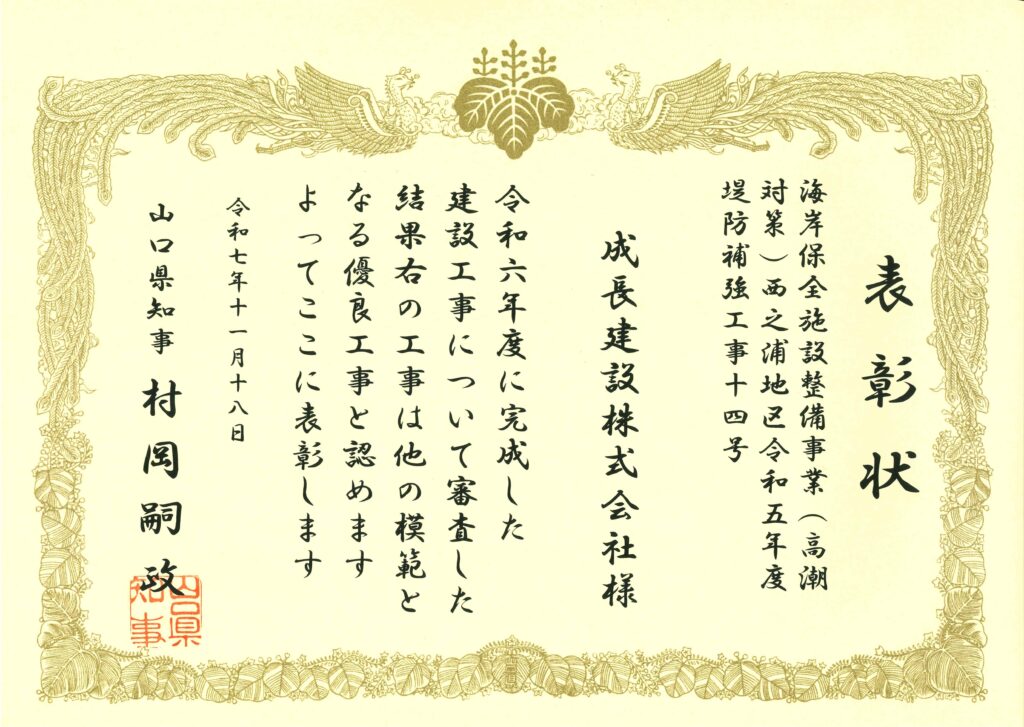 表彰状
海岸保全施設整備事業（高潮
対策）西之浦地区令和五年度
堤防補強工事十四号
成長建設株式会社様
令和六年度に完成した
建設工事について審査した
結果右の工事は他の模範と
なる優良工事と認めます
よってここに表彰します
令和七年十一月十八日
山口県知事 村岡嗣政
山口県
知事